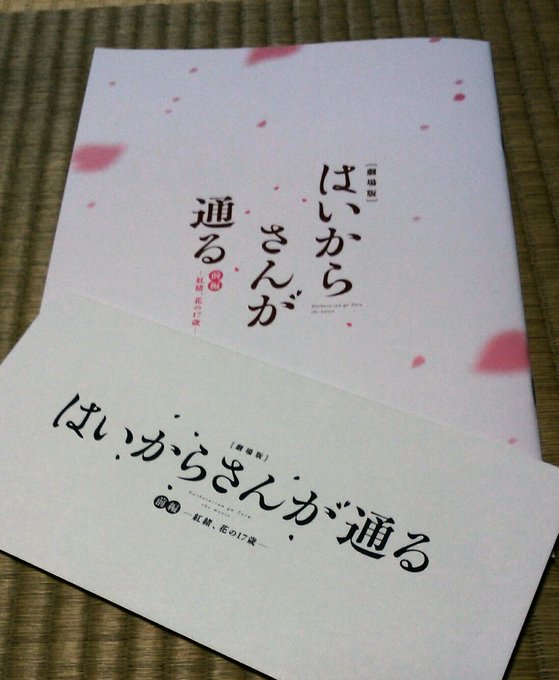 ［劇場版］
はいから
さんが
通る
Haikara-san ga Toru
the movie
前編
―紅緒、花の17歳―
［劇場版］
はいからさんが通る
Haikara-san ga Toru
the movie
前編 ―紅緒、花の17歳―